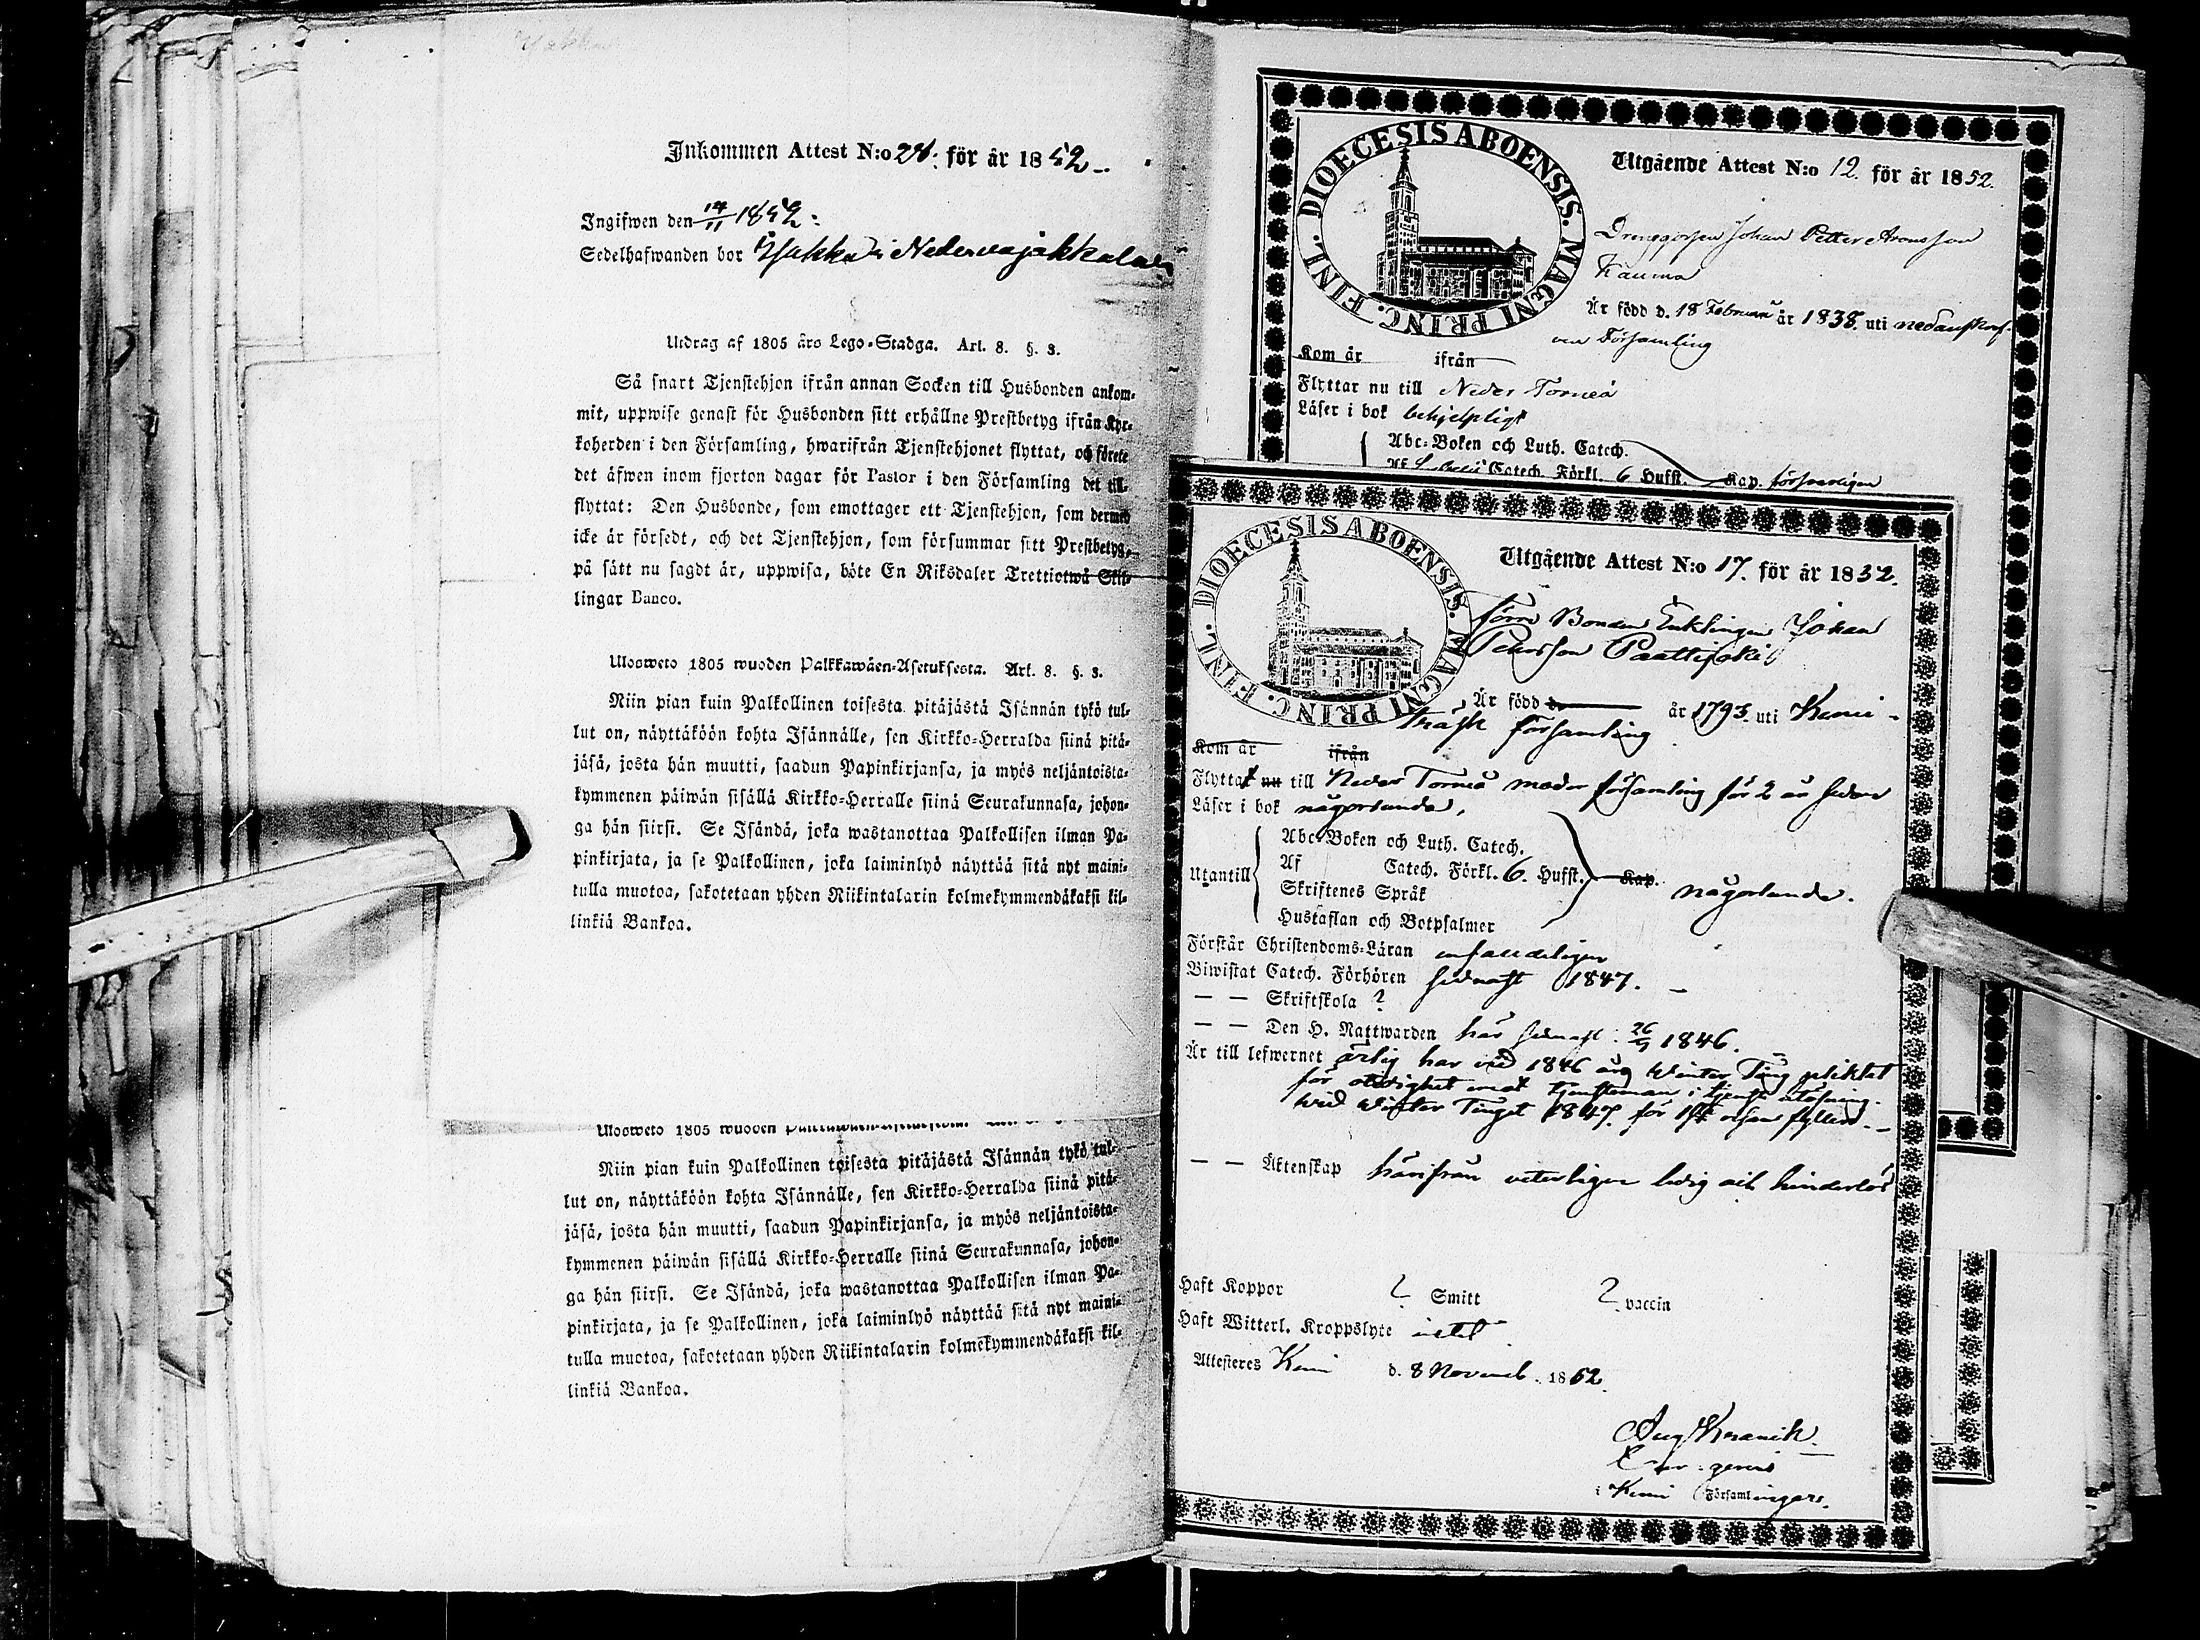 Inkommen Attest N:o 28. för år 1852
Ingifwen den 14/11 1852.
Sedelhafwanden bor i Nedervojakkala
Utdrag af 1805 års Lego-Stadga. Art. 8. §. 3.
Så snart Tjenstehjon ifrån annan Socken till Husbonden ankom-
mit, uppwise genast för Husbonden sitt erhållne Prestbetyg ifrån Kyr-
koherden i den Församling, hwarifrån Tjenstehjonet flyttat, och förete
det äfwen inom fjorton dagar för Pastor i den Församling det till-
flyttat: Den Husbonde, som emottager ett Tjenstehjon, som dermed
icke är försedt, och det Tjenstehjon, som försummar sitt Prestbetyg,
på sätt nu sagdt är, uppwisa, böte En Riksdaler Trettiotwå Skil-
lingar Banco.
Ulosweto 1805 wuoden Palkkawäen-Asetuksesta. Art. 8. §. 3.
Niin pian kuin Palkollinen toisesta pitäjästä Isännän tykö tul-
lut on, näyttäköön kohta Isännälle, sen Kirkko-Herralda siinä pitä-
jäsä, josta hän muutti, saadun Papinkirjansa, ja myös neljäntoista-
kymmenen päiwän sisällä Kirkko-Herralle siinä Seurakunnasa, johon-
ga hän siirsi. Se Isändä, joka wastanottaa Palkollisen ilman Pa-
pinkirjata, ja se Palkollinen, joka laiminlyö näyttää sitä nyt maini-
tulla muotoa, sakotetaan yhden Riikintalarin kolmekymmendäkaksi kil-
linkiä Bankoa.
Ulosweto 1805 wuoden
Niin pian kuin Palkollinen toisesta pitäjästä Isännän tykö tul-
lut on, näyttäköön kohta Isännälle, sen Kirkko-Herralda siinä pitä-
jäsä, josta hän muutti, saadun Papinkirjansa, ja myös neljäntoista-
kymmenen päiwän sisällä Kirkko-Herralle siinä Seurakunnasa, johon-
ga hän siirsi. Se Isändä, joka wastanottaa Palkollisen ilman Pa-
pinkirjata, ja se Palkollinen, joka laiminlyö näyttää sitä nyt maini-
tulla muotoa, sakotetaan yhden Riikintalarin kolmekymmendäkaksi kil-
linkiä Bankoa.
DIOECESIS ABOENSIS. MAGNI PRINC. FINL.
Utgående Attest N:o 12. för år 1852.
Drenggossen Johan Petter Aronsson
Kauma
Är född d. 18 Februari år 1838. uti nedanskref-
ven Församling
Kom år ifrån
Flyttar nu till Neder Torneå
Läser i bok behjelpligt
Abc-Boken och Luth. Catech.
Af Catech. Förkl. 6 Hufst. Kap. försvarligen
DIOECESIS ABOENSIS. MAGNI PRINC. FINL.
Utgående Attest N:o 17. för år 1852.
förre Bonden Enklingen Johan
Pehrsson
Är född d. år 1793. uti Kemi-
träsk församling
Kom år ifrån
Flyttat nu till Neder Torneå moder församling för 2 år sedan
Läser i bok någorlunda,
Utantill
Abc-Boken och Luth. Catech.
Af Catech. Förkl. 6. Hufst. Kap. någorlunda.
Skriftenes Språk
Hustaflan och Botpsalmer
Förstår Christendoms-Läran enfaldeligen
Biwistat Catech. Förhören sednast 1847.
— — Skriftskola ?
— — Den H. Nattwarden här sednast 26/9 1846.
Är till lefwernet ärlig har vid 1846 års Winter Ting pliktat
för otidighet emot tjensteman i tjenste utöfning.
wid Winter Tinget 1847. för 1sta resan fylleri.
— — Äktenskap härifrån veterligen ledig och hinderlös
Haft Koppor ? Smitt ? vaccin
Haft Witterl. Kroppslyte intet
Attesteres Kemi d. 8 Novemb. 1852.
i Kemi Församlingars.